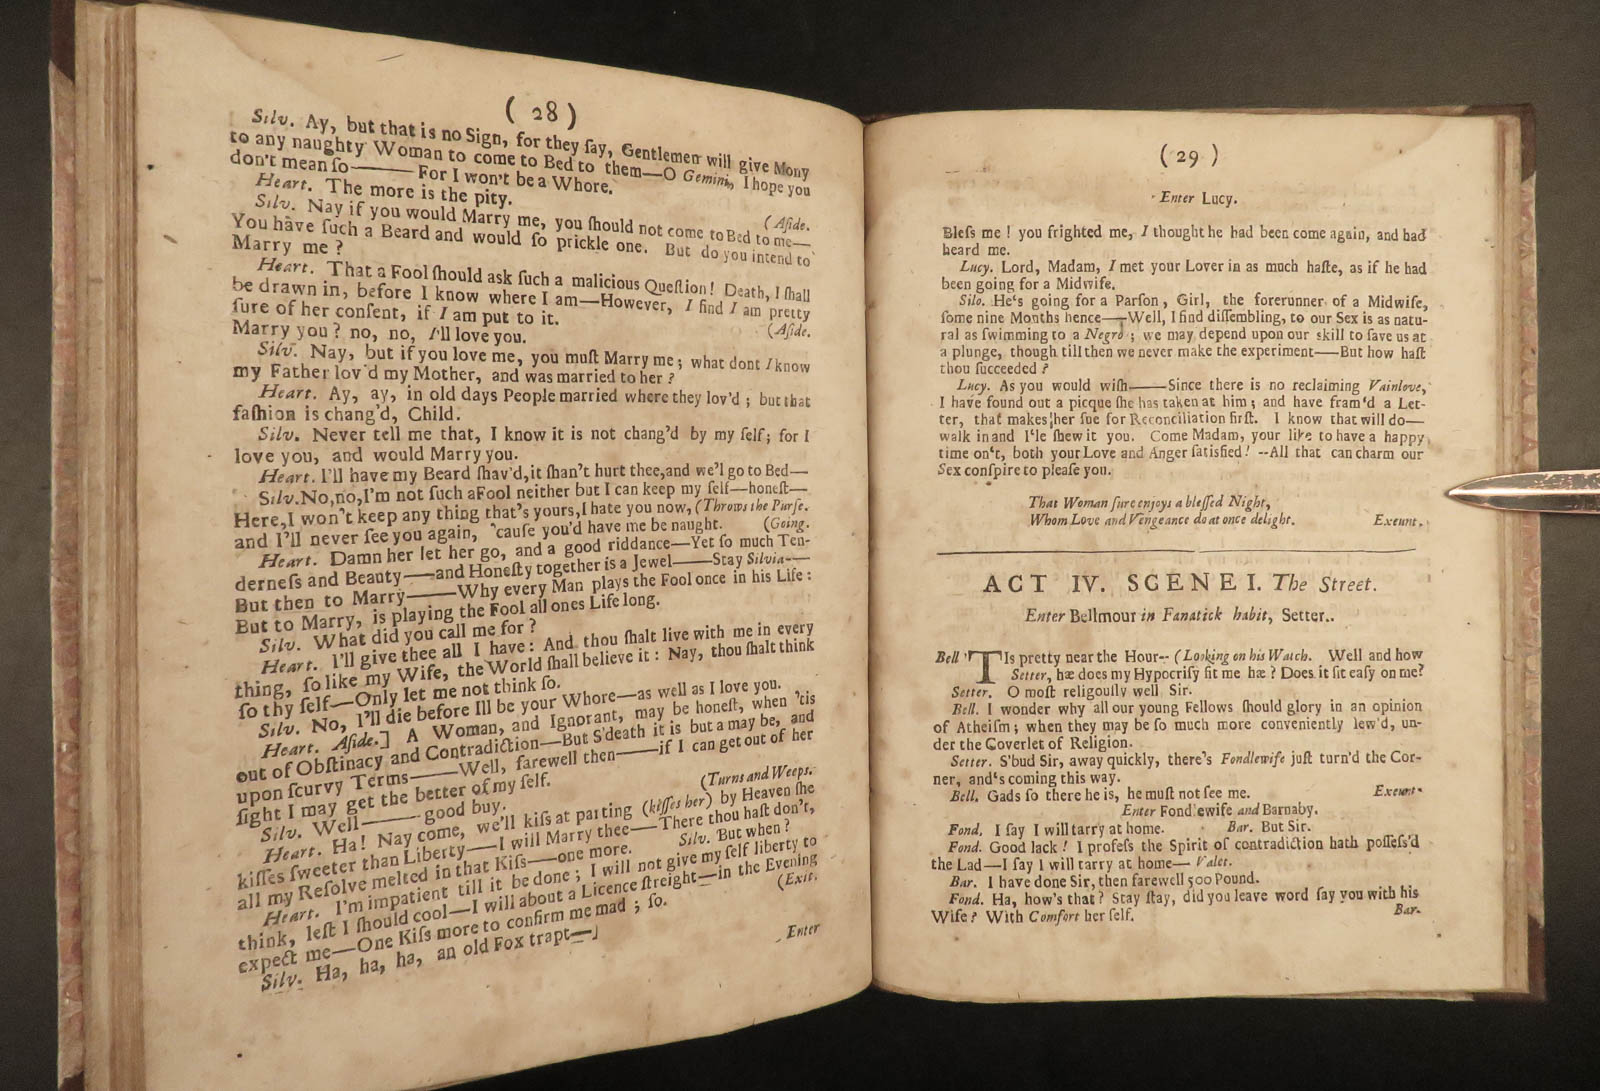 ( 28 )
Silv. Ay, but that is no Sign, for they ſay, Gentlemen will give Mony
to any naughty Woman to come to Bed to them—O Gemini, I hope you
don't mean ſo——For I won't be a Whore.
Heart. The more is the pity. (Aſide.
Silv. Nay if you would Marry me, you ſhould not come to Bed to me—
You have ſuch a Beard and would ſo prickle one. But do you intend to
Marry me ?
Heart. That a Fool ſhould ask ſuch a malicious Queſtion! Death, I ſhall
be drawn in, before I know where I am—However, I find I am pretty
ſure of her conſent, if I am put to it. (Aſide.
Marry you ? no, no, I'll love you.
Silv. Nay, but if you love me, you muſt Marry me ; what dont I know
my Father lov'd my Mother, and was married to her ?
Heart. Ay, ay, in old days People married where they lov'd ; but that
faſhion is chang'd, Child.
Silv. Never tell me that, I know it is not chang'd by my ſelf; for I
love you, and would Marry you.
Heart. I'll have my Beard ſhav'd,it ſhan't hurt thee,and we'l go to Bed—
Silv.No,no,I'm not ſuch a Fool neither but I can keep my ſelf—honeſt—
Here,I won't keep any thing that's yours,I hate you now, (Throws the Purſe.
and I'll never ſee you again, 'cauſe you'd have me be naught. (Going.
Heart. Damn her let her go, and a good riddance—Yet ſo much Ten-
derneſs and Beauty——and Honeſty together is a Jewel——Stay Silvia—
But then to Marry——Why every Man plays the Fool once in his Life :
But to Marry, is playing the Fool all ones Life long.
Silv. What did you call me for ?
Heart. I'll give thee all I have: And thou ſhalt live with me in every
thing, ſo like my Wife, the World ſhall believe it : Nay, thou ſhalt think
ſo thy ſelf—Only let me not think ſo.
Silv. No, I'll die before Ill be your Whore—as well as I love you.
Heart. Aſide.] A Woman, and Ignorant, may be honeſt, when 'tis
out of Obſtinacy and Contradiction—But S'death it is but a may be, and
upon ſcurvy Terms——Well, farewell then——if I can get out of her
ſight I may get the better of my ſelf.
Silv. Well——good buy. (Turns and Weeps.
Heart. Ha! Nay come, we'll kiſs at parting (kiſſes her) by Heaven ſhe
kiſſes ſweeter than Liberty—I will Marry thee—There thou haſt don't,
all my Reſolve melted in that Kiſs—one more. Silv. But when ?
Heart. I'm impatient till it be done ; I will not give my ſelf liberty to
think, leſt I ſhould cool—I will about a Licence ſtreight—in the Evening
expect me—One Kiſs more to confirm me mad ; ſo. (Exit.
Silv. Ha, ha, ha, an old Fox trapt—
Enter
( 29 )
Enter Lucy.
Bleſs me ! you frighted me, I thought he had been come again, and had
heard me.
Lucy. Lord, Madam, I met your Lover in as much haſte, as if he had
been going for a Midwife.
Silo. He's going for a Parſon, Girl, the forerunner of a Midwife,
ſome nine Months hence——Well, I find diſſembling, to our Sex is as natu-
ral as ſwimming to a Negro ; we may depend upon our skill to ſave us at
a plunge, though till then we never make the experiment—But how haſt
thou ſucceeded ?
Lucy. As you would wiſh——Since there is no reclaiming Vainlove,
I have found out a picque ſhe has taken at him ; and have fram'd a Let-
ter, that makes her ſue for Reconciliation firſt. I know that will do—
walk in and I'le ſhew it you. Come Madam, your like to have a happy
time on't, both your Love and Anger ſatisfied! --All that can charm our
Sex conſpire to pleaſe you.
That Woman ſure enjoys a bleſſed Night,
Whom Love and Vengeance do at once delight. Exeunt.
ACT IV. SCENE I. The Street.
Enter Bellmour in Fanatick habit, Setter..
Bell 'TIs pretty near the Hour-- (Looking on his Watch. Well and how
Setter, hæ does my Hypocriſy fit me hæ ? Does it ſit eaſy on me?
Setter. O moſt religouſly well Sir.
Bell. I wonder why all our young Fellows ſhould glory in an opinion
of Atheiſm ; when they may be ſo much more conveniently lew'd, un-
der the Coverlet of Religion.
Setter. S'bud Sir, away quickly, there's Fondlewife juſt turn'd the Cor-
ner, and's coming this way.
Bell. Gads ſo there he is, he muſt not ſee me. Exeunt.
Enter Fond ewife and Barnaby.
Fond. I ſay I will tarry at home. Bar. But Sir.
Fond. Good lack ! I profeſs the Spirit of contradiction hath poſſeſs'd
the Lad—I ſay I will tarry at home— Valet.
Bar. I have done Sir, then farewell 500 Pound.
Fond. Ha, how's that ? Stay ſtay, did you leave word ſay you with his
Wife ? With Comfort her ſelf. Bar.